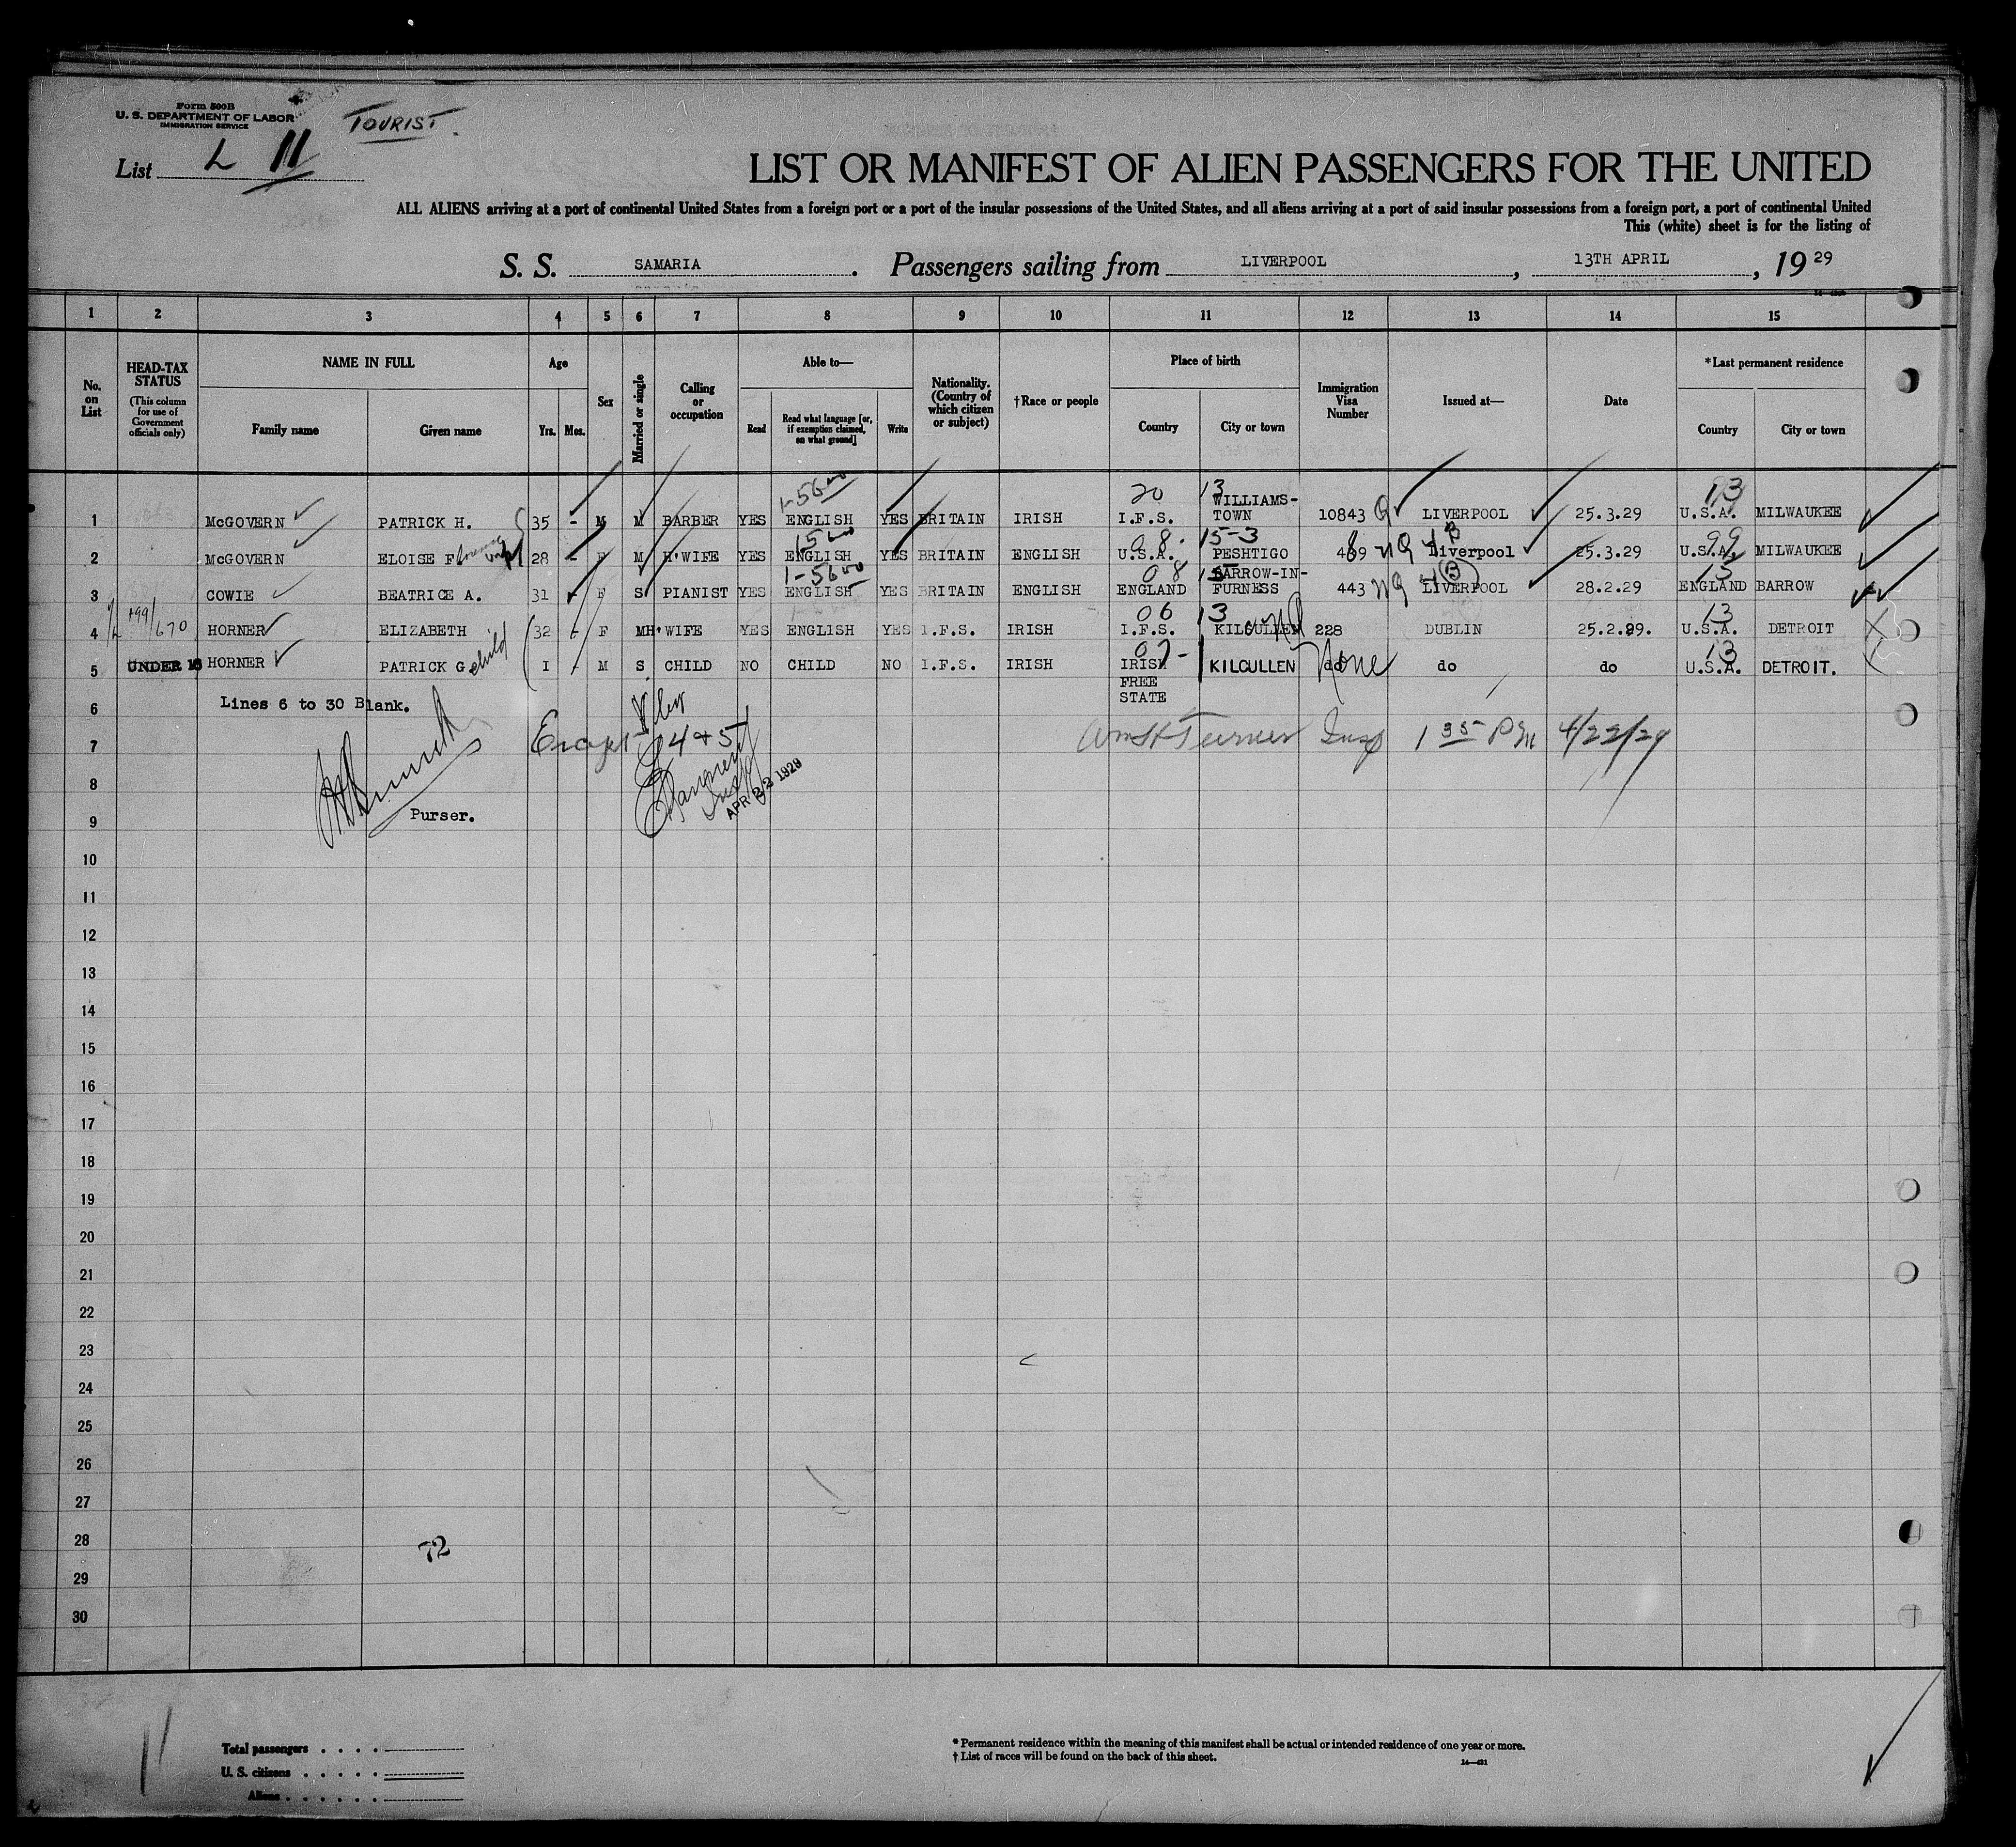 Form 500B
U. S. DEPARTMENT OF LABOR
IMMIGRATION SERVICE
TOURIST.
List L 11
LIST OR MANIFEST OF ALIEN PASSENGERS FOR THE UNITED
ALL ALIENS arriving at a port of continental United States from a foreign port or a port of the insular possessions of the United States, and all aliens arriving at a port of said insular possessions from a foreign port, a port of continental United
This (white) sheet is for the listing of
S. S. SAMARIA . Passengers sailing from LIVERPOOL , 13TH APRIL , 19 29
1 2 3 4 5 6 7 8 9 10 11 12 13 14 15
No. on List
HEAD-TAX STATUS (This column for use of Government officials only)
NAME IN FULL
Family name Given name
Age
Yrs. Mos.
Sex
Married or single
Calling or occupation
Able to—
Read Read what language [or, if exemption claimed, on what ground] Write
Nationality. (Country of which citizen or subject)
†Race or people
Place of birth
Country City or town
Immigration Visa Number
Issued at—
Date
*Last permanent residence
Country City or town
20 13 13
1 McGOVERN PATRICK H. 35 - M M BARBER YES ENGLISH YES BRITAIN IRISH I.F.S. WILLIAMS-TOWN 10843 LIVERPOOL 25.3.29 U.S.A. MILWAUKEE
08 15-3 99
2 McGOVERN ELOISE F 28 - F M H'WIFE YES ENGLISH YES BRITAIN ENGLISH U.S.A. PESHTIGO Liverpool 25.3.29 U.S.A. MILWAUKEE
1-5600 08 15 13
3 COWIE BEATRICE A. 31 F S PIANIST YES ENGLISH YES BRITAIN ENGLISH ENGLAND BARROW-IN-FURNESS 443 LIVERPOOL 28.2.29 ENGLAND BARROW
499/670 06 13 13
4 HORNER ELIZABETH 32 - F M H'WIFE YES ENGLISH YES I.F.S. IRISH I.F.S. KILCULLEN 228 DUBLIN 25.2.29. U.S.A. DETROIT
07- 13
5 UNDER 16 HORNER PATRICK G child I - M S CHILD NO CHILD NO I.F.S. IRISH IRISH FREE STATE KILCULLEN do None do do U.S.A. DETROIT.
6 Lines 6 to 30 Blank.
7 Except 4 & 5 Wm H Turner Insp 1 35 PM 4/22/29
8 APR 22 1929
9 Purser.
10
11
12
13
14
15
16
17
18
19
20
21
22
23
24
25
26
27
28 72
29
30
Total passengers . . . .
U. S. citizens . . . . .
Aliens . . . . . .
* Permanent residence within the meaning of this manifest shall be actual or intended residence of one year or more.
† List of races will be found on the back of this sheet.
14—421